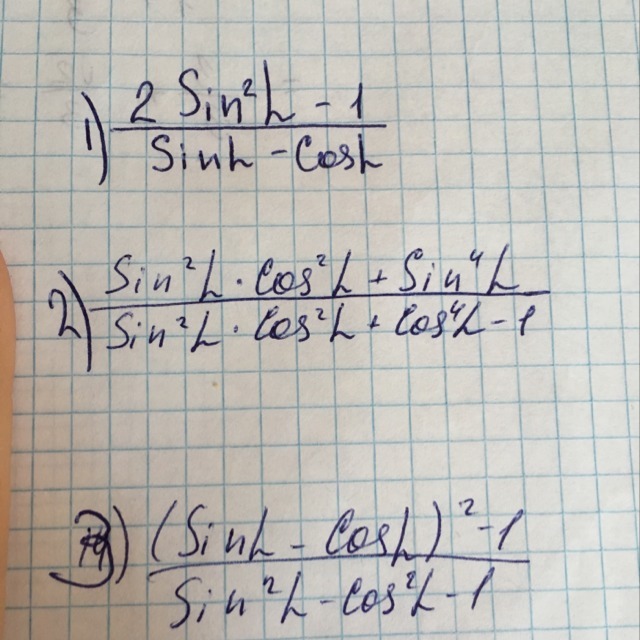 1) 2 Sin²L - 1
SinL - CosL
2) Sin²L · Cos²L + Sin⁴L
Sin²L · Cos²L + Cos⁴L - 1
3) (SinL - CosL)² - 1
Sin²L - Cos²L - 1